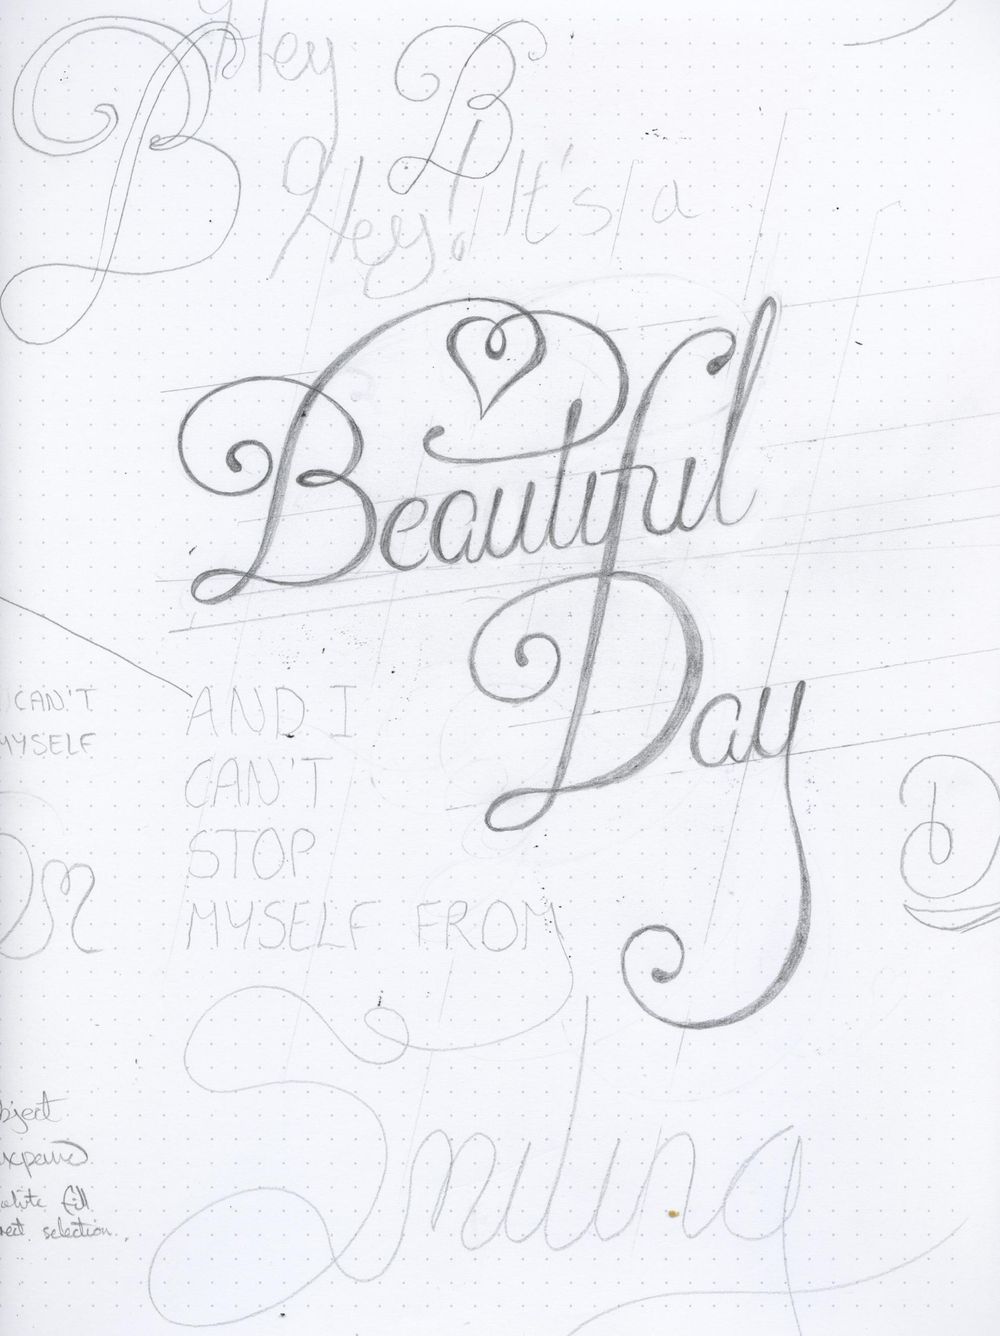 Hey
B
B
Hey! It's a
Beautiful
Day
CAN'T
MYSELF
AND I
CAN'T
STOP
MYSELF FROM
D
Smiling
bject
expand
white fill
rect selection.